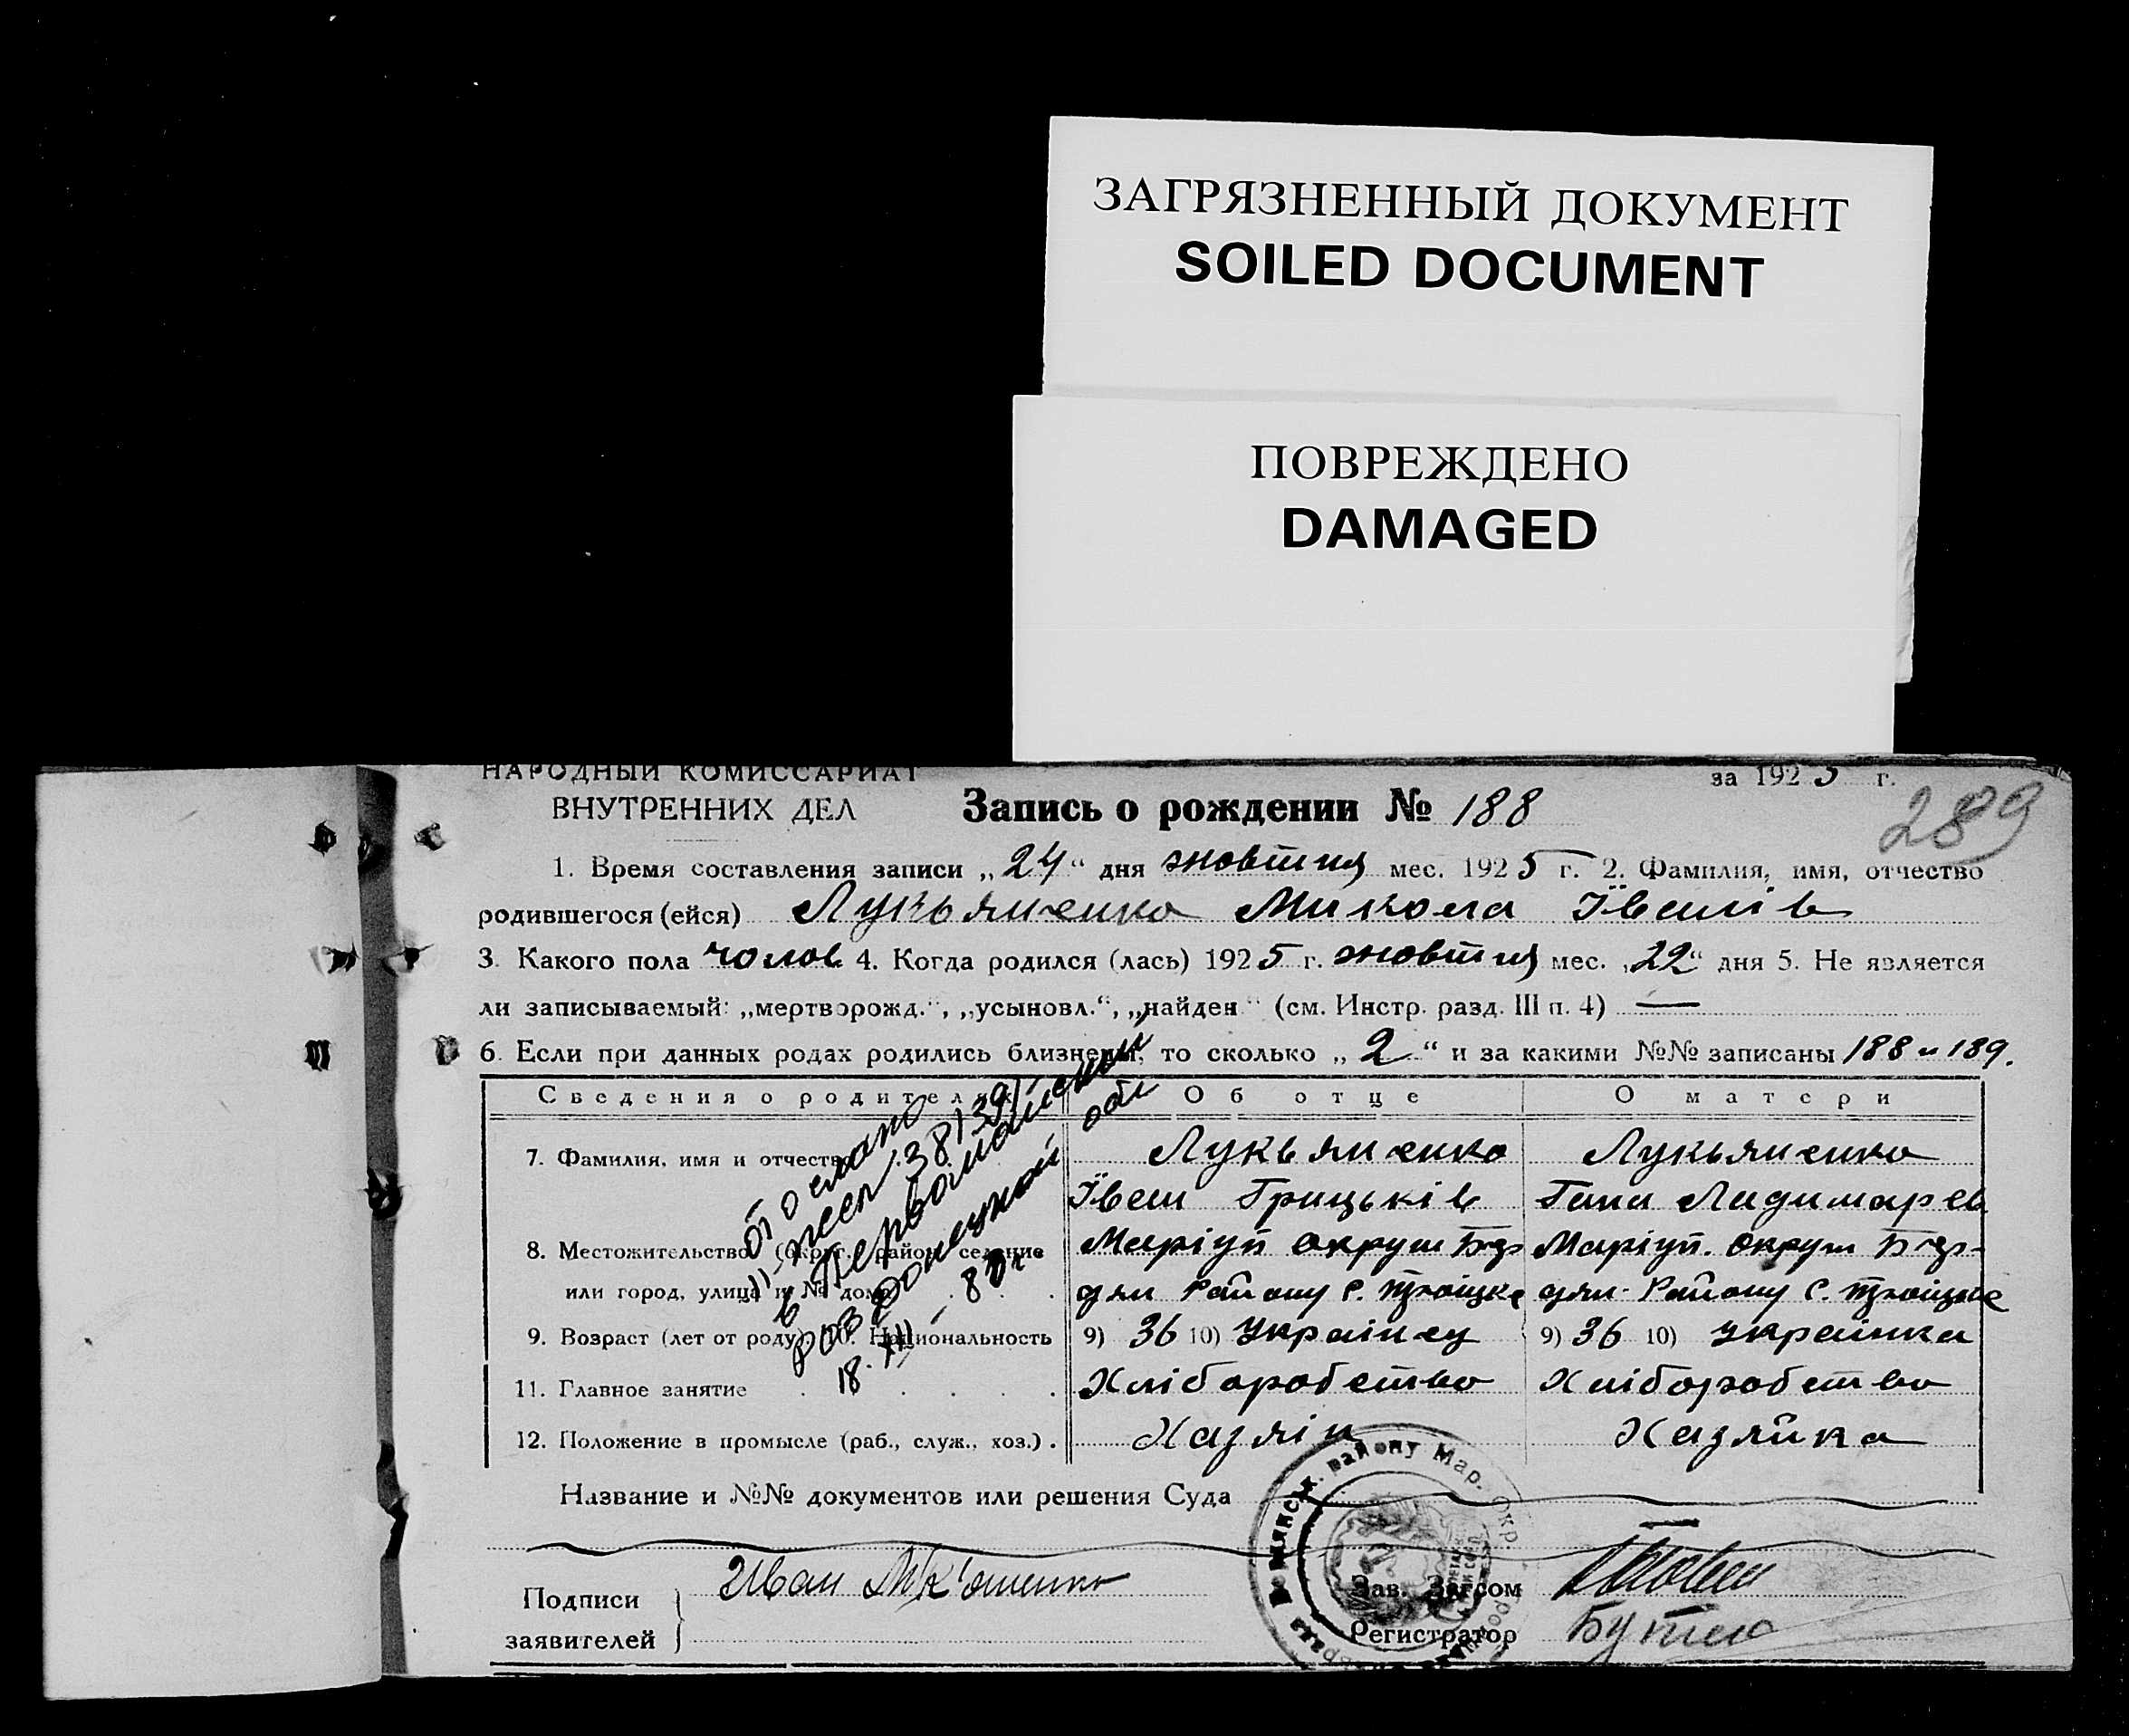 ЗАГРЯЗНЕННЫЙ ДОКУМЕНТ
SOILED DOCUMENT
ПОВРЕЖДЕНО
DAMAGED
НАРОДНЫЙ КОМИССАРИАТ
ВНУТРЕННИХ ДЕЛ
за 1925 г.
Запись о рождении № 188
289
1. Время составления записи „24“ дня жовтня мес. 1925 г. 2. Фамилия, имя, отчество
родившегося (ейся) Лукьяненко Микола Івашів
3. Какого пола чолов. 4. Когда родился (лась) 1925 г. жовтня мес. „22“ дня 5. Не является
ли записываемый: „мертворожд.“, „усыновл.“, „найден“ (см. Инстр. разд. III п. 4) —
6. Если при данных родах родились близнецы, то сколько „2“ и за какими №№ записаны 188 и 189.
Сведения о родителях
Об отце
О матери
7. Фамилия, имя и отчество
Лукьяненко
Іван Грицьків
Лукьяненко
Гана
8. Местожительство (округ, район, селение
или город, улица и № дома)
Маріуп округи Бер
дян Району С. Троіцке
Маріуп. Округи Бер-
дян. Району С. Троіцьке
9. Возраст (лет от роду). 10. Национальность
9) 36 10) Українец
9) 36 10) Українка
11. Главное занятие
Хлiборобство
Хлiборобство
12. Положение в промысле (раб., служ., хоз.)
Хазяін
Хазяйка
отослано
в Первомайский
Донецкой обл
18. XII
Название и №№ документов или решения Суда
Подписи
заявителей
Иван
Зав. Загсом
Регистратор
району Мар. Окр